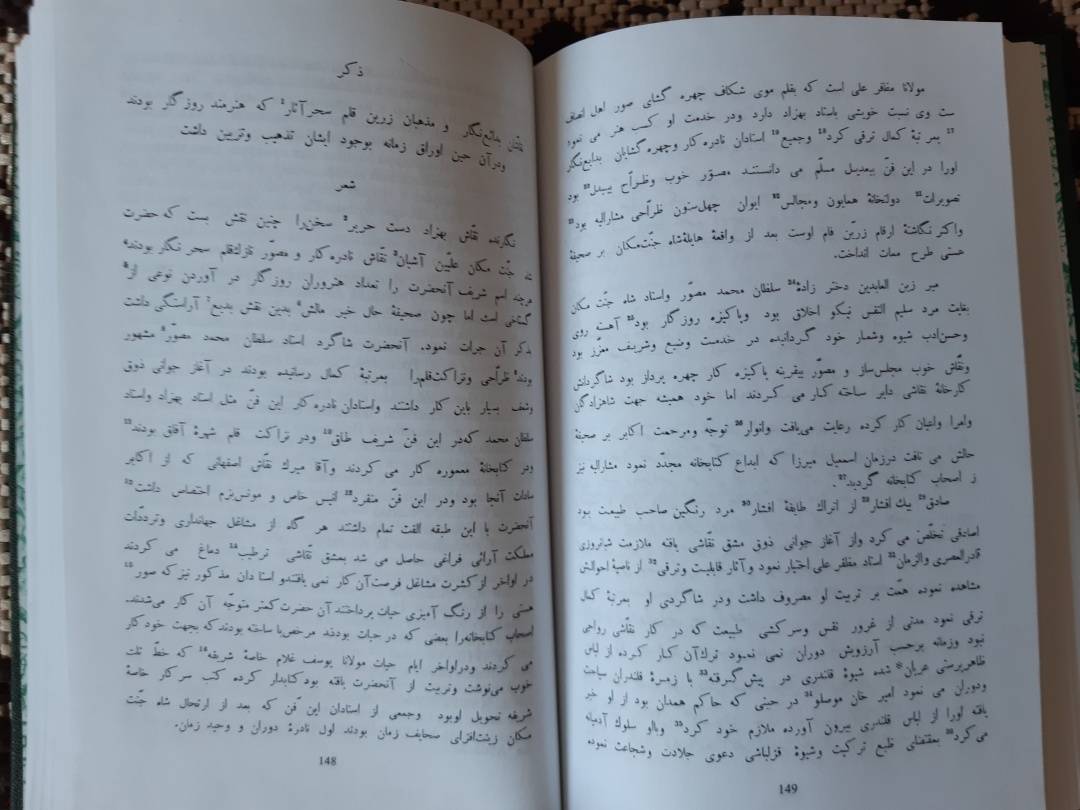 ذکر
نقاشان بدایع‌نگار و مذهبان زرین قلم سحرآثار1 که هنرمند روزگار بودند
ودرآن حین اوراق زمانه بوجود ایشان تذهیب وتزیین داشت
شعر
نگارنده نقاش بهزاد دست حریر2 سخن‌را چنین نقش بست که‌حضرت
شاه جنّت مکان علّیین آشیان3 نقاش نادره‌کار و مصوّر نازك‌قلم سحر نگار بودند4
هرچند اسم شریف آنحضرت را تعداد هنروران روزگار در آوردن نوعی از5
گستاخی است اما چون صحیفهٔ حال خیر مآلش6 بدین نقش بدیع7 آراستگی داشت
بذکر آن جرات نمود. آنحضرت شاگرد استاد سلطان محمد مصوّر8 مشهور
بودند9 طرّاحی ونزاکت‌قلم‌را بمرتبهٔ کمال رسانیده بودند در آغاز جوانی ذوق
وشعف بسیار باین کار داشتند واستادان نادره‌کار این فنّ مثل استاد بهزاد واستاد
سلطان محمد که‌در این فنّ شریف طاق10 ودر نزاکت قلم شهرهٔ آفاق بودند11
ودر کتابخانهٔ معموره کار می‌کردند وآقا میرك نقاش اصفهانی که از اکابر
سادات آنجا بود ودر این فنّ منفرد12 انیس خاص و مونس‌بزم اختصاص داشت13
آنحضرت با این طبقه الفت تمام داشتند هر گاه از مشاغل جهانداری وتردّدات
مملکت آرائی فراغی حاصل می شد بمشق نقّاشی ترطیب14 دماغ می کردند
در اواخر از کثرت مشاغل فرصت‌آن کار نمی یافتندو استا دان مذکور نیز که صور15
هستی را از رنگ آمیزی حیات پرداختند آن حضرت کمتر متوجّه آن کار می‌شدند.
اصحاب کتابخانه‌را بعضی که در حیات بودند مرخص‌با ساخته بودند که بجهت خودکار
می کردند ودراواخر ایام حیات مولانا یوسف غلام خاصهٔ شریفه16 که خطّ ثلث
خوب می‌نوشت وتربیت از آنحضرت یافته بود کتابدار کرده کتب سرکار خاصهٔ
شریفه تحویل اوبود وجمعی از استادان این فن که بعد از ارتحال شاه جنّت
مکان زینت‌افزای صحایف زمان بودند اول نادرهٔ دوران و وحید زمان.
148
مولانا مظفر علی است که بقلم موی شکاف چهره گشای صور اهل انصاف
ست وی نسبت خویشی باستاد بهزاد دارد ودر خدمت او کسب هنر می نمود
17 بمر تبهٔ کمال ترقی کرد18 وجمیع19 استادان نادره کار وچهره‌گشایان بدایع‌نگار
اورا در این فنّ بیعدیل مسلّم می دانستند مصوّر خوب وطرّاح بیبدل20 بود
تصویرات21 دولتخانهٔ همایون ومجالس22 ایوان چهل‌ستون طرّاحی مشارالیه بود23
واکثر نگاشتهٔ ارقام زرّین قلم اوست بعد از واقعهٔ هایلهٔ‌شاه جنّت‌مکان بر صحیفهٔ
هستی طرح ممات انداخت.
میر زین العابدین دختر زادهٔ24 سلطان محمد مصوّر واستاد شاه جنّت مکان
بغایت مرد سلیم النفس نیکو اخلاق بود وپاکیزه روزگار بود25 آهسته روی
وحسن‌ادب شیوه وشعار خود گردانیده در خدمت وضیع وشریف معزّز بود
ونقّاش خوب مجلس‌ساز و مصوّر بیقرینه پاکیزه کار چهره پرداز بود شاگردانش
کارخانهٔ نقاشی دایر ساخته کار می کردند اما خود همیشه جهت شاهزادگان
وامرا واعیان کار کرده رعایت می‌یافت وانوار26 توجّه ومرحمت اکابر بر صحیفهٔ
حالش می تافت درزمان اسمعیل میرزا که ابداع کتابخانه مجدّد نمود مشارالیه نیز
ز اصحاب کتابخانه گردید27.
صادق28 بیك افشار29 از اتراك طایفهٔ افشار30 مرد رنگین صاحب طبیعت بود
صادقی تخلّص می کرد واز آغاز جوانی ذوق مشق نقّاشی یافته ملازمت شبانروزی
نادرالعصری والزمان31 استاد مظفر علی اختیار نمود وآثار قابلیت وترقی32 از ناصیهٔ احوالش
مشاهده نموده همّت بر تربیت او مصروف داشت ودر شاگردی او بمرتبهٔ کمال
ترقی نمود مدتی از غرور نفس وسرکشی طبیعت که در کار نقّاشی رواجی
نبود وزمانه برحسب آرزویش دوران نمی نمود ترك‌آن کار کرده از لباس
ظاهرپرستی عریان* شده شیوهٔ قلندری در پیش‌گرفته33 با زمرهٔ قلندران سیاحت
ودوران می نمود امیر خان موصلو34 در حینی که حاکم همدان بود از او خبر
یافته اورا از لباس قلندری بیرون آورده ملازم خود کرد35 وبااو سلوك آدمیانه
می‌کرد36 بمقتضای طبع ترکیت وشیوهٔ قزلباشی دعوی جلادت وشجاعت نموده
149